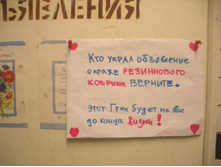 ЯВЛЕНИЯ
Кто украл объявление
о краже РЕЗИННОВОГО
КОВРИКА ВЕРНИТЕ.
этот Грех будет на вас
до конца Жизни!